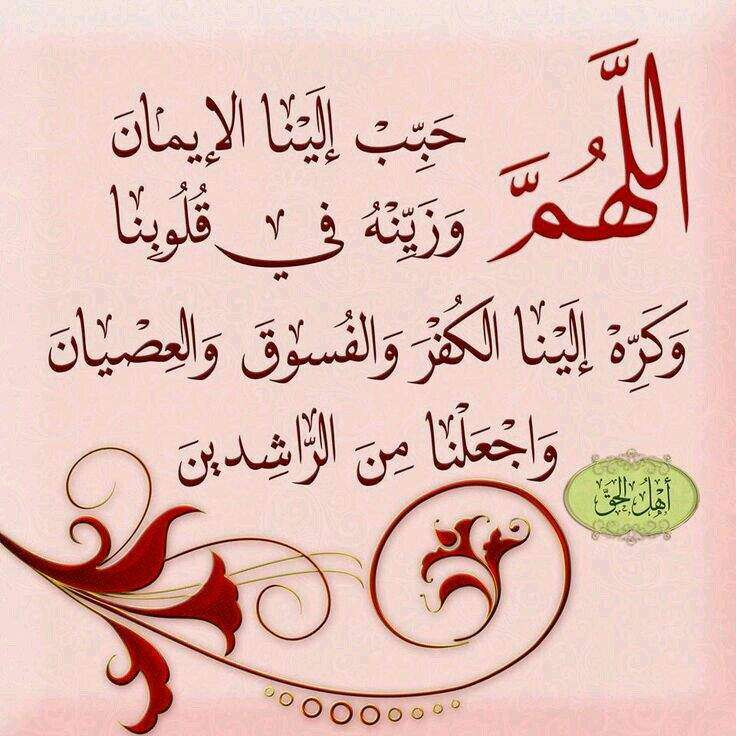 اللَّهُمَّ
حَبِّبْ إِلَيْنا الإيمانَ
وَزَيِّنْهُ في قُلُوبِنا
وَكَرِّهْ إِلَيْنا الكُفْرَ وَالفُسوقَ وَالعِصْيانَ
وَاجْعَلْنا مِنَ الرَّاشِدينَ
أَهْلُ الحَقِّ